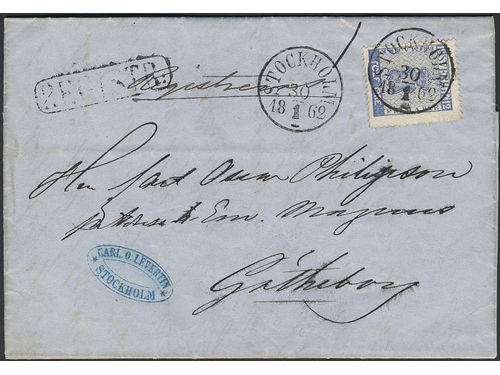 REGISTR.
Registreras
STOCKHOLM
30
18 1 62
STOCKHOLM
30
18 1 62
Herr Carl Oscar Philipson
Em. Magnus
Götheborg
CARL. O. LEVERTIN
STOCKHOLM